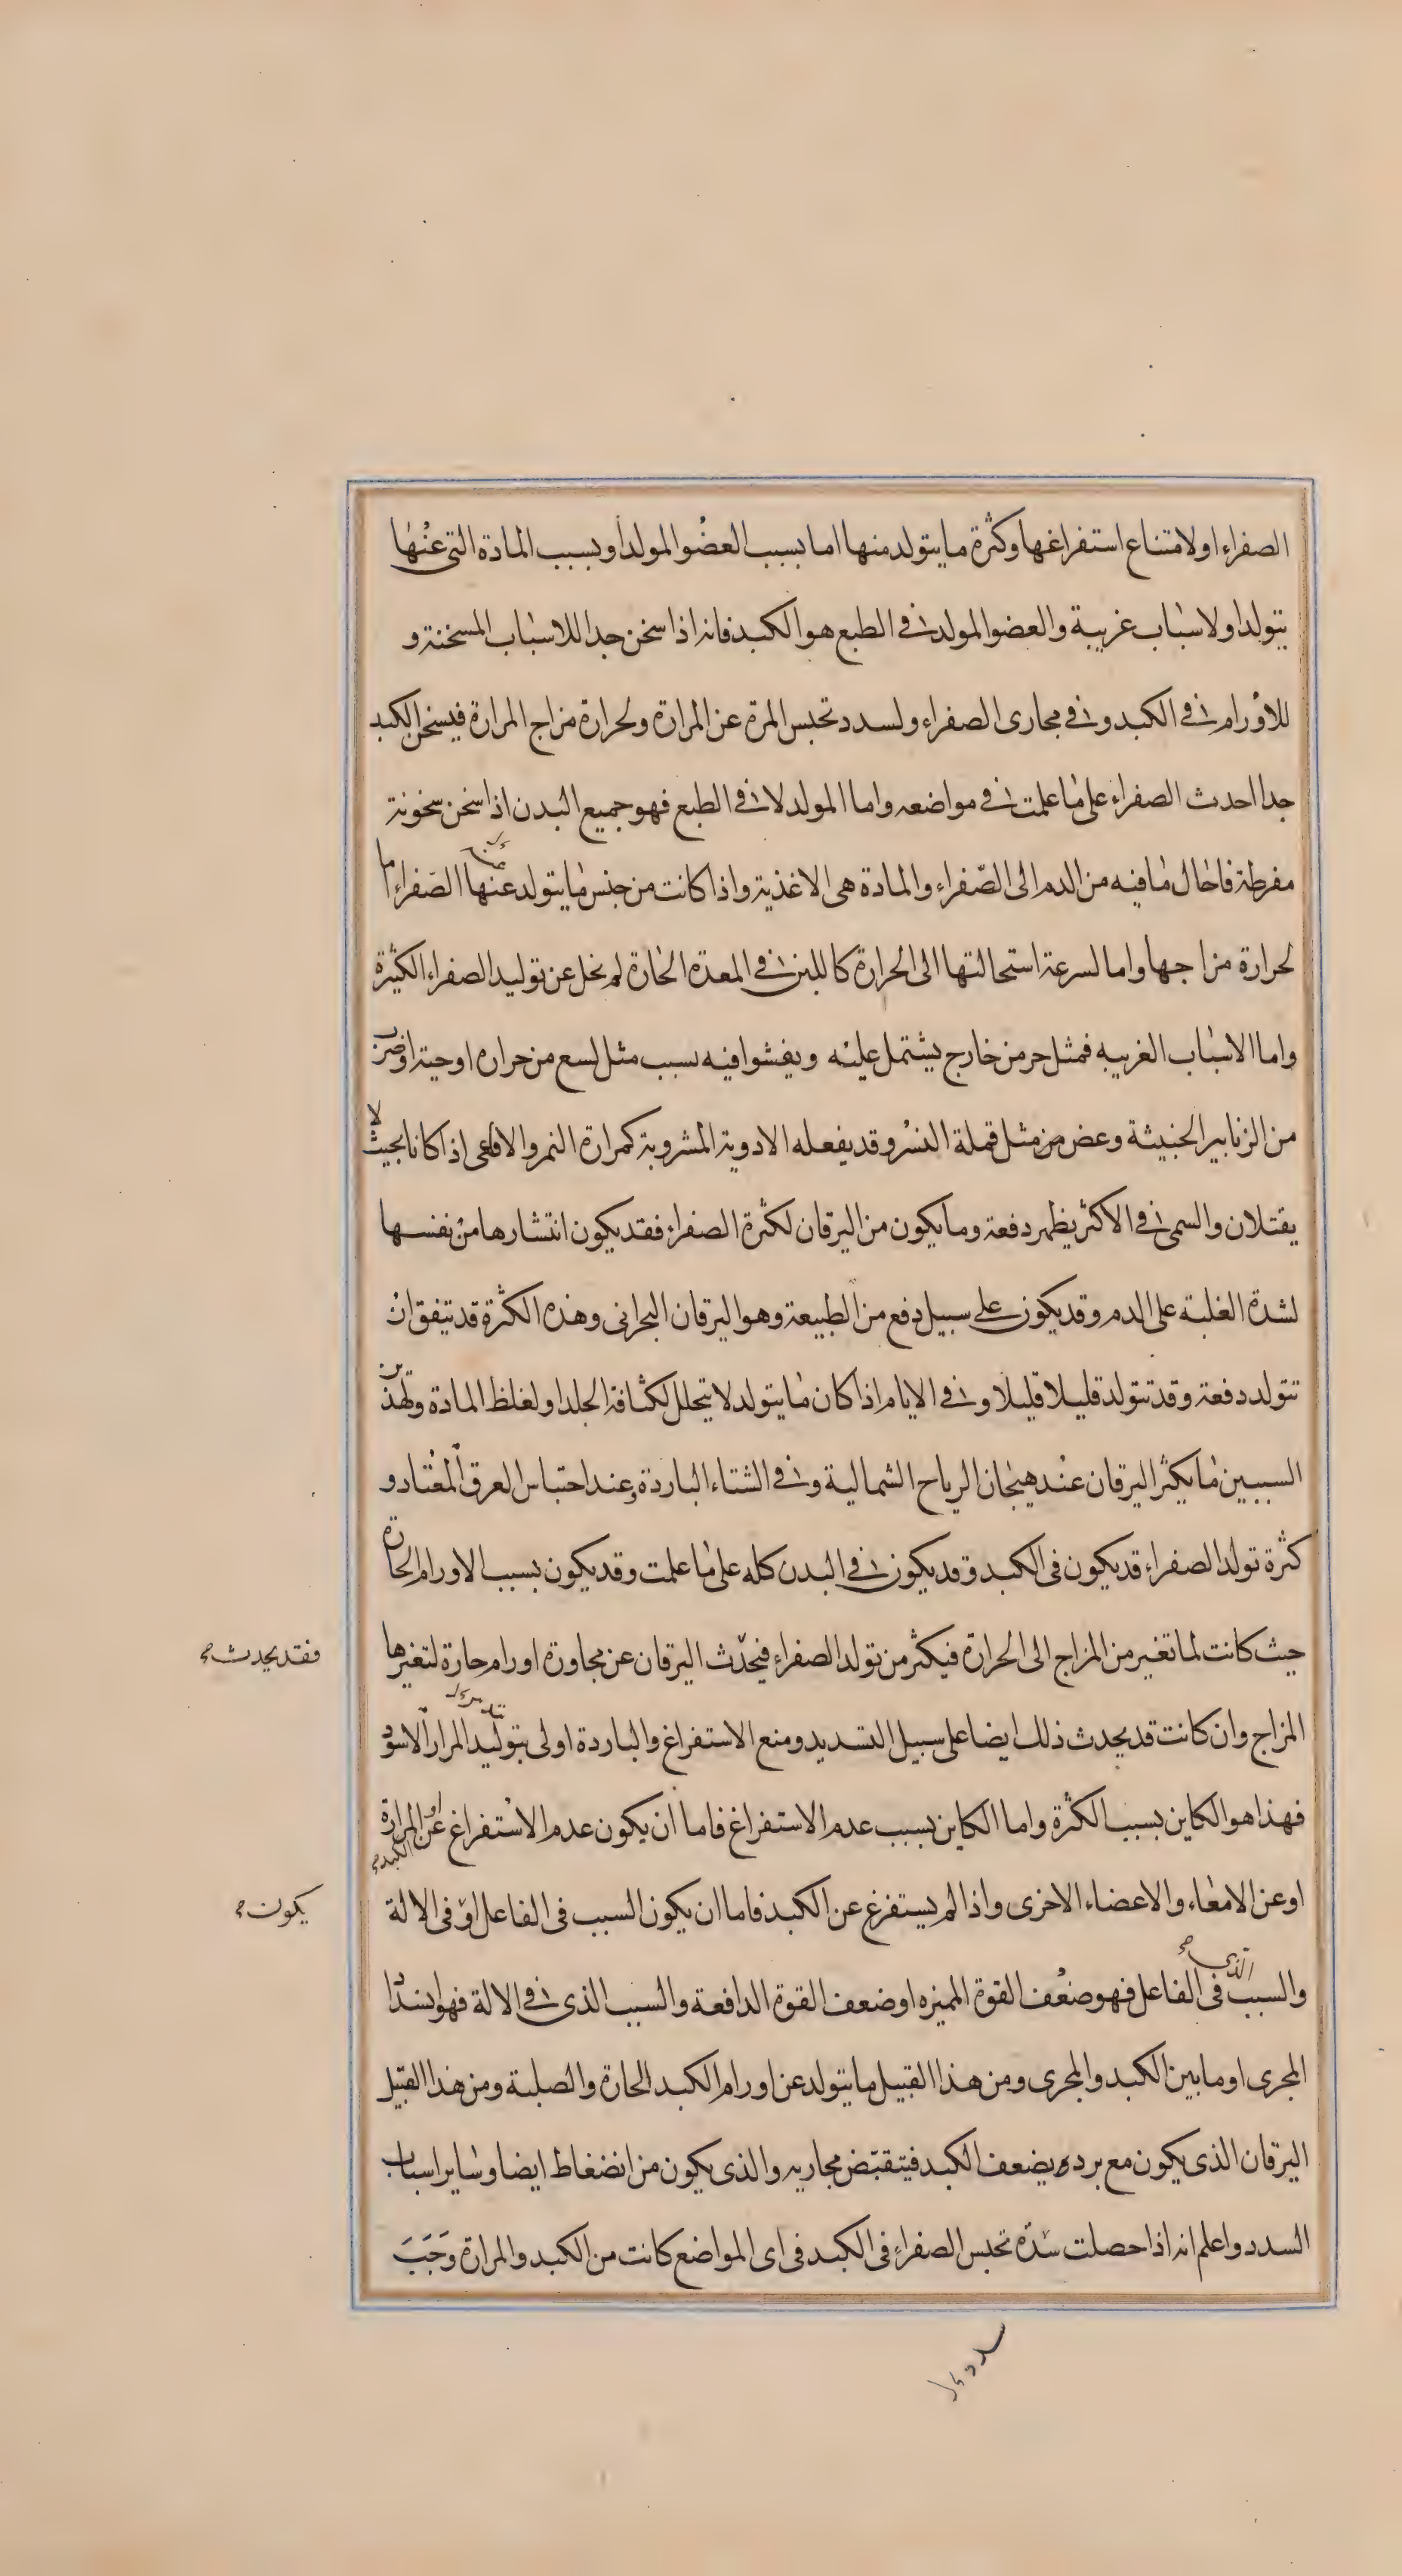 الصفراء او لامتناع استفراغها وكثرة ما يتولد منها اما بسبب العضو المولد او بسبب المادة التى عنها
يتولد او لاسباب غريبة والعضو المولد فى الطبع هو الكبد فانه اذا سخن جدا للاسباب المسخنة و
للاورام فى الكبد و فى مجارى الصفراء ولسدد تحبس المرة عن المرارة ولحرارة مزاج المرارة فيسخن الكبد
جدا احدث الصفراء على ما علمت فى مواضعه واما المولد لا فى الطبع فهو جميع البدن اذا سخن سخونة
مفرطة فاحال ما فيه من الدم الى الصفراء والمادة هى الاغذية واذا كانت من جنس ما يتولد عنها الصفراء اما
لحرارة مزاجها واما لسرعة استحالتها الى الحرارة كاللبن فى المعدة الحارة لم يخل عن توليد الصفراء الكثيرة
واما الاسباب الغريبه فمثل حر من خارج يشتمل عليه ويفشوا فيه بسبب مثل لسع من حراره او حية او ضرب
من الزنابير الخبيثة وعض من مثل قملة النسر وقد يفعله الادوية المشروبة كمرارة النمر والافاعى اذا كانا بحيث لا
يقتلان والسمى فى الاكثر يظهر دفعة وما يكون من اليرقان لكثرة الصفراء فقد يكون انتشارها من نفسها
لشدة الغلبة على الدم وقد يكون على سبيل دفع من الطبيعة وهو اليرقان البحرانى وهذه الكثرة قد تتفق ان
تتولد دفعة وقد تتولد قليلا قليلا و فى الايام اذا كان ما يتولد لا يتحلل لكثافة الجلد او لغلظ المادة ولهذين
السببين ما يكثر اليرقان عند هيجان الرياح الشمالية و فى الشتاء الباردة وعند احتباس العرق المعتاد و
كثرة تولد الصفراء قد يكون فى الكبد وقد يكون فى البدن كله على ما علمت وقد يكون بسبب الاورام الحارة
حيث كانت لما تغير من المزاج الى الحرارة فيكثر من تولد الصفراء فيحدث اليرقان عن مجاورة اورام حارة لتغيرها
فقد يحدث صح
المزاج وان كانت قد يحدث ذلك ايضا على سبيل التسديد ومنع الاستفراغ والباردة اولى بتوليد المرار الاسود
فهذا هو الكاين بسبب الكثرة واما الكاين بسبب عدم الاستفراغ فاما ان يكون عدم الاستفراغ عن الكبد او عن المرارة
او عن الامعاء والاعضاء الاخرى واذا لم يستفرغ عن الكبد فاما ان يكون السبب فى الفاعل او فى الالة
يكون صح
والسبب الذى فى الفاعل فهو ضعف القوة المميزه او ضعف القوة الدافعة والسبب الذى فى الالة فهو انسداد
المجرى او ما بين الكبد والمجرى ومن هذا القبيل ما يتولد عن اورام الكبد الحارة والصلبة ومن هذا القبيل
اليرقان الذى يكون مع برد يضعف الكبد فيتقبض مجاريه والذى يكون من انضغاط ايضا وساير اسباب
السدد واعلم انه اذا حصلت سدة تحبس الصفراء فى الكبد فى اى المواضع كانت من الكبد والمرارة وجب